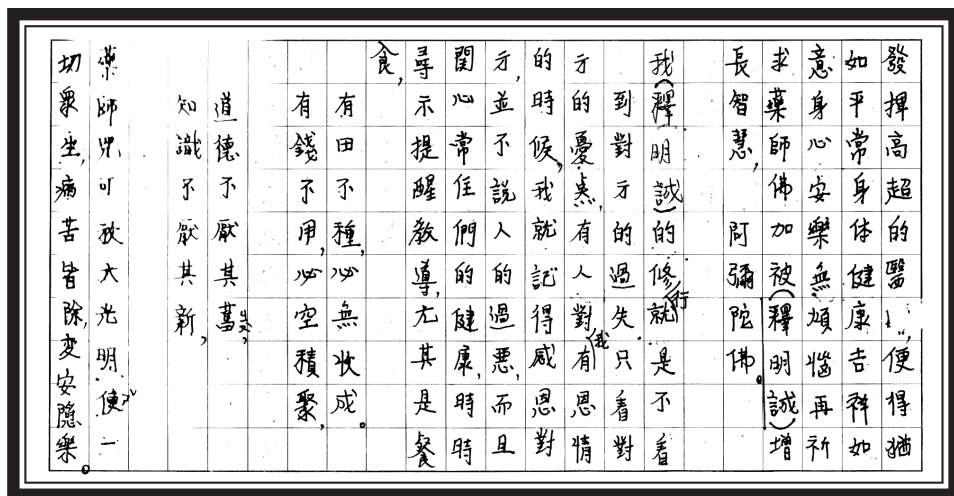 發揮高超的醫 便得猶
如平常身体健康吉祥如
意身心安樂無煩惱再祈
求藥師佛加被(釋明誠)增
長智慧, 阿彌陀佛。
我(釋明誠)的修行就是不看
到對方的過失只看對
方的憂点,有人對我有恩情
的時候,我就記得感恩對
方,並不說人的過惡,而且
関心常住們的健康,時時
尋示提醒教導,尤其是餐
食,
有田不種,必無收成。
有錢不用,必空積聚,
道德不厭其舊,
知識不厭其新,
藥師咒可放大光明,使一
切眾生,病苦皆除,变安隱樂。